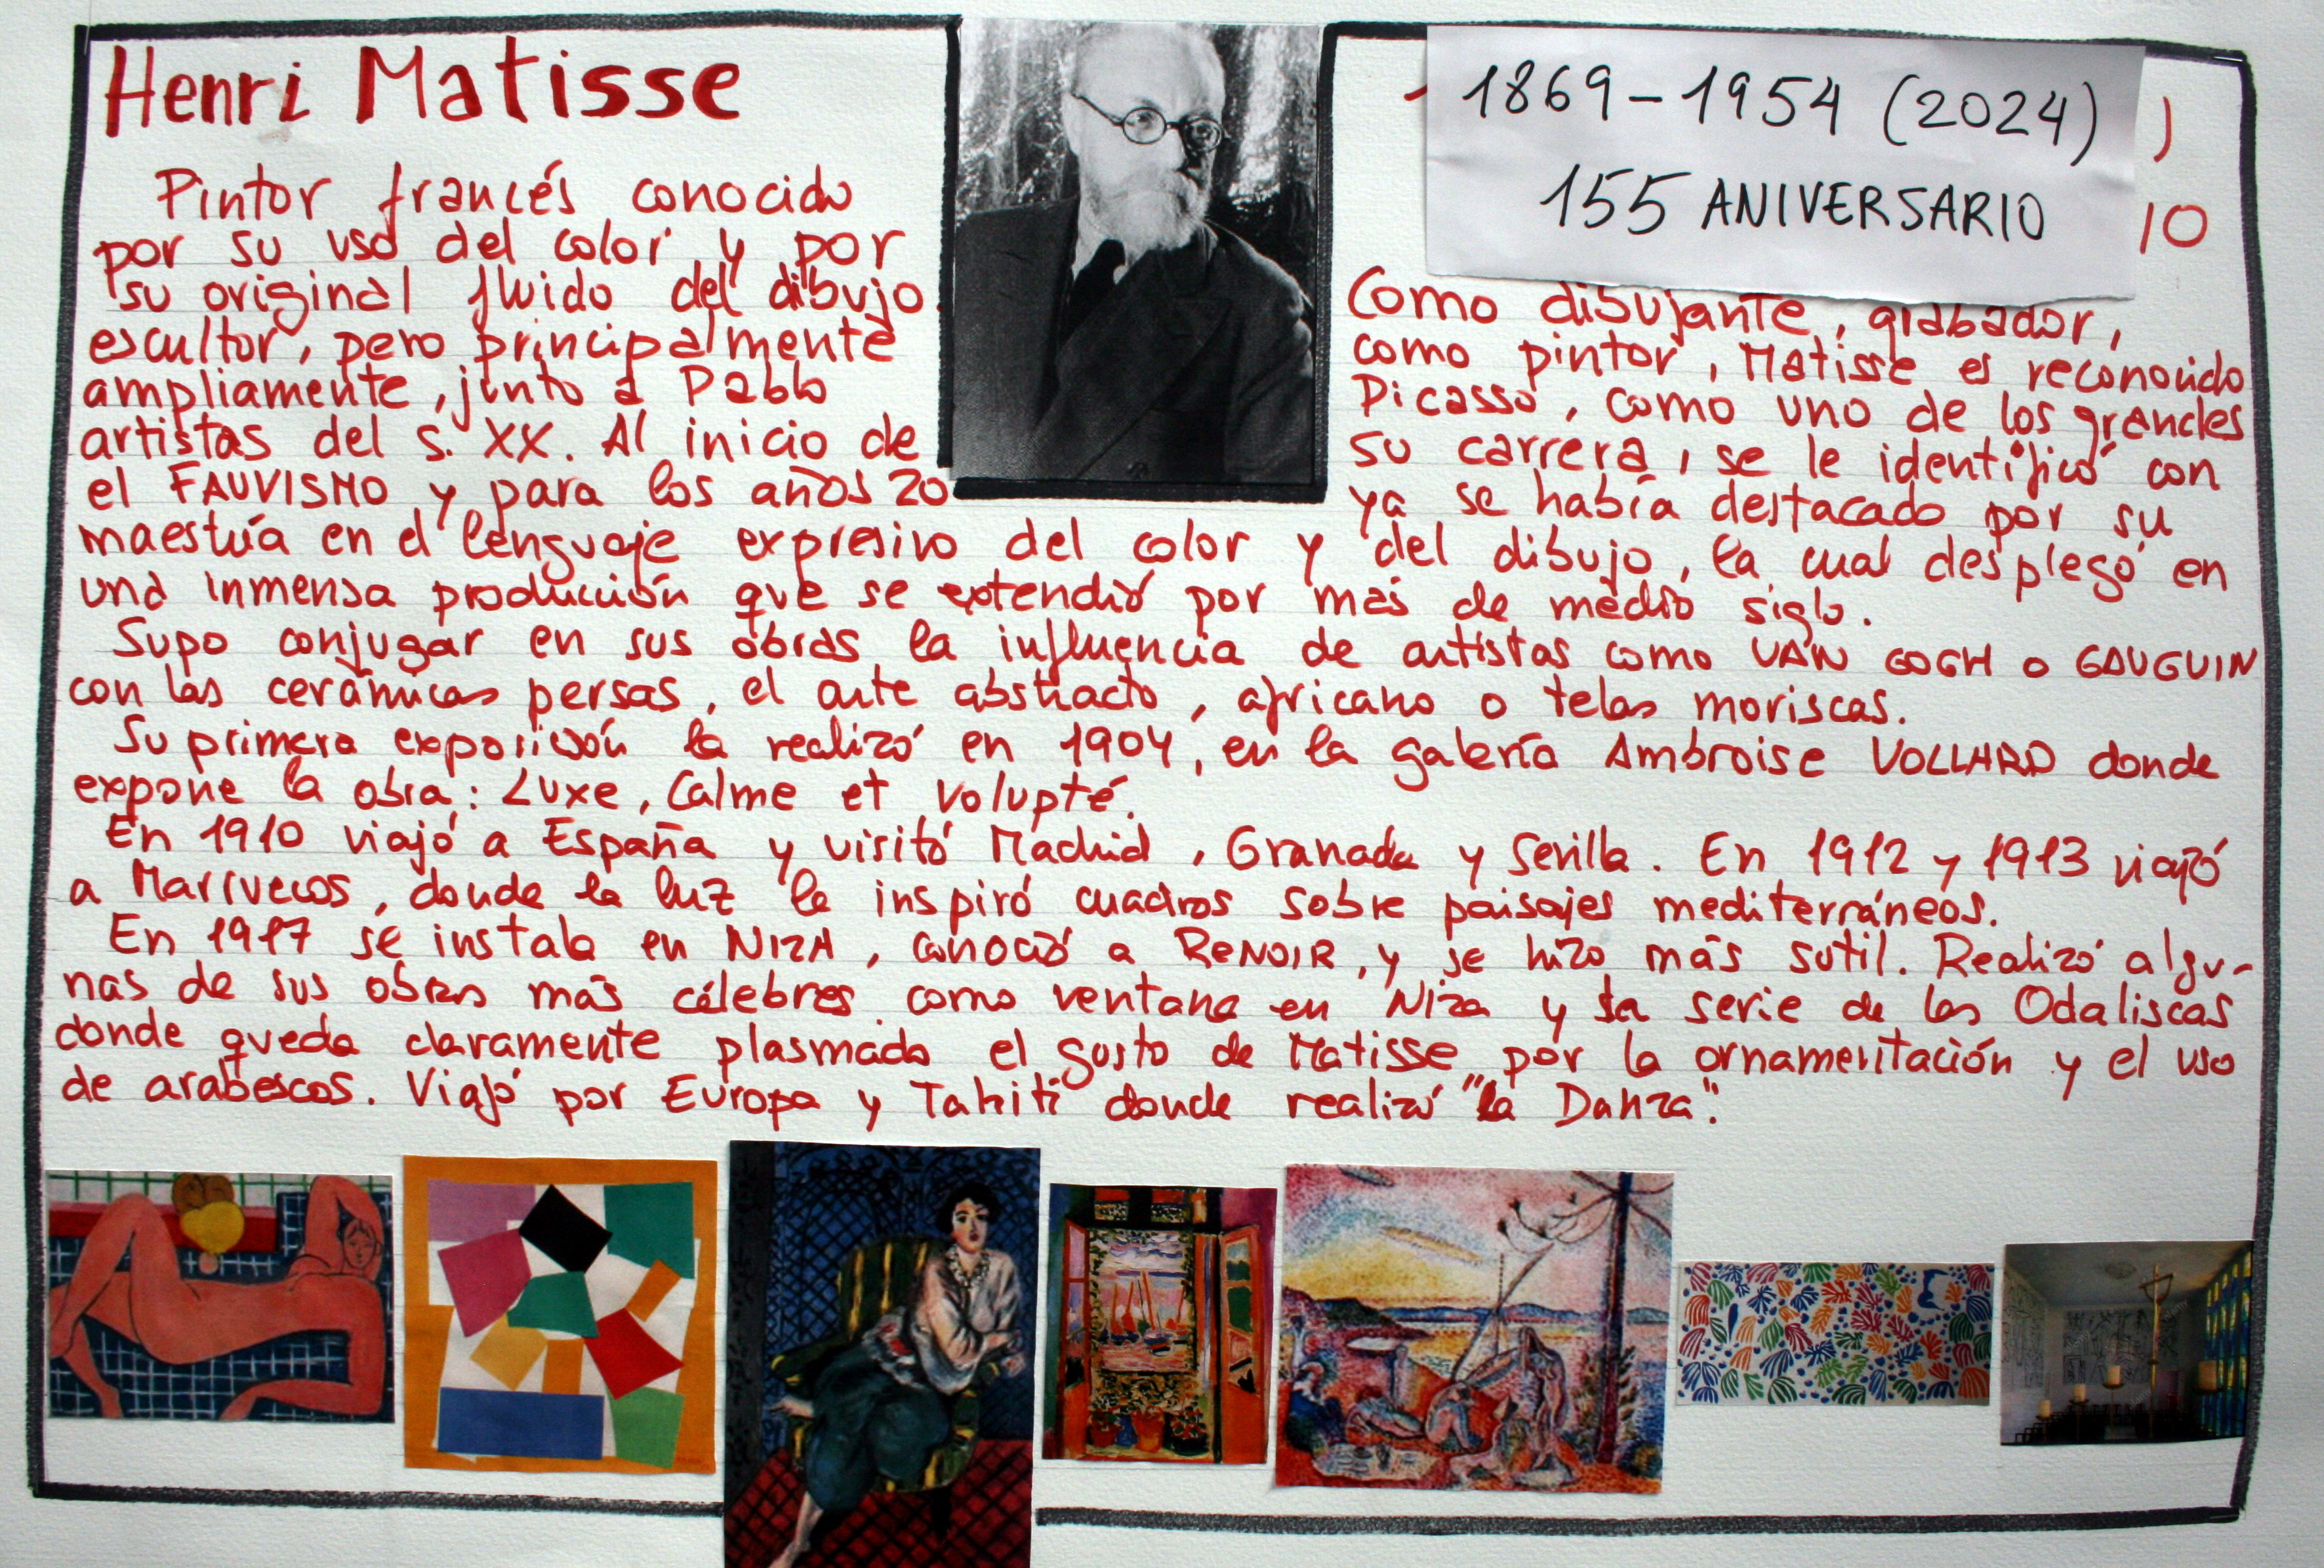 Henri Matisse
1869-1954 (2024)
155 ANIVERSARIO
)
10
Pintor francés conocido
por su uso del color y por
su original fluido del dibujo. Como dibujante, grabador,
escultor, pero principalmente como pintor, Matisse es reconocido
ampliamente, junto a Pablo Picasso, como uno de los grandes
artistas del s. XX. Al inicio de su carrera, se le identificó con
el FAUVISMO y para los años 20 ya se había destacado por su
maestría en el lenguaje expresivo del color y del dibujo, la cual desplegó en
una inmensa producción que se extendió por más de medio siglo.
Supo conjugar en sus obras la influencia de artistas como VAN GOGH o GAUGUIN
con las cerámicas persas, el arte abstracto, africano o telas moriscas.
Su primera exposición la realizó en 1904, en la galería Ambroise VOLLARD donde
expone la obra: Luxe, Calme et Volupté.
En 1910 viajó a España y visitó Madrid, Granada y Sevilla. En 1912 y 1913 viajó
a Marruecos, donde la luz le inspiró cuadros sobre paisajes mediterráneos.
En 1917 se instala en NIZA, conoció a RENOIR, y se hizo más sutil. Realizó algu-
nas de sus obras más célebres como ventana en Niza y la serie de las Odaliscas
donde queda claramente plasmado el gusto de Matisse por la ornamentación y el uso
de arabescos. Viajó por Europa y Tahití donde realizó "la Danza".